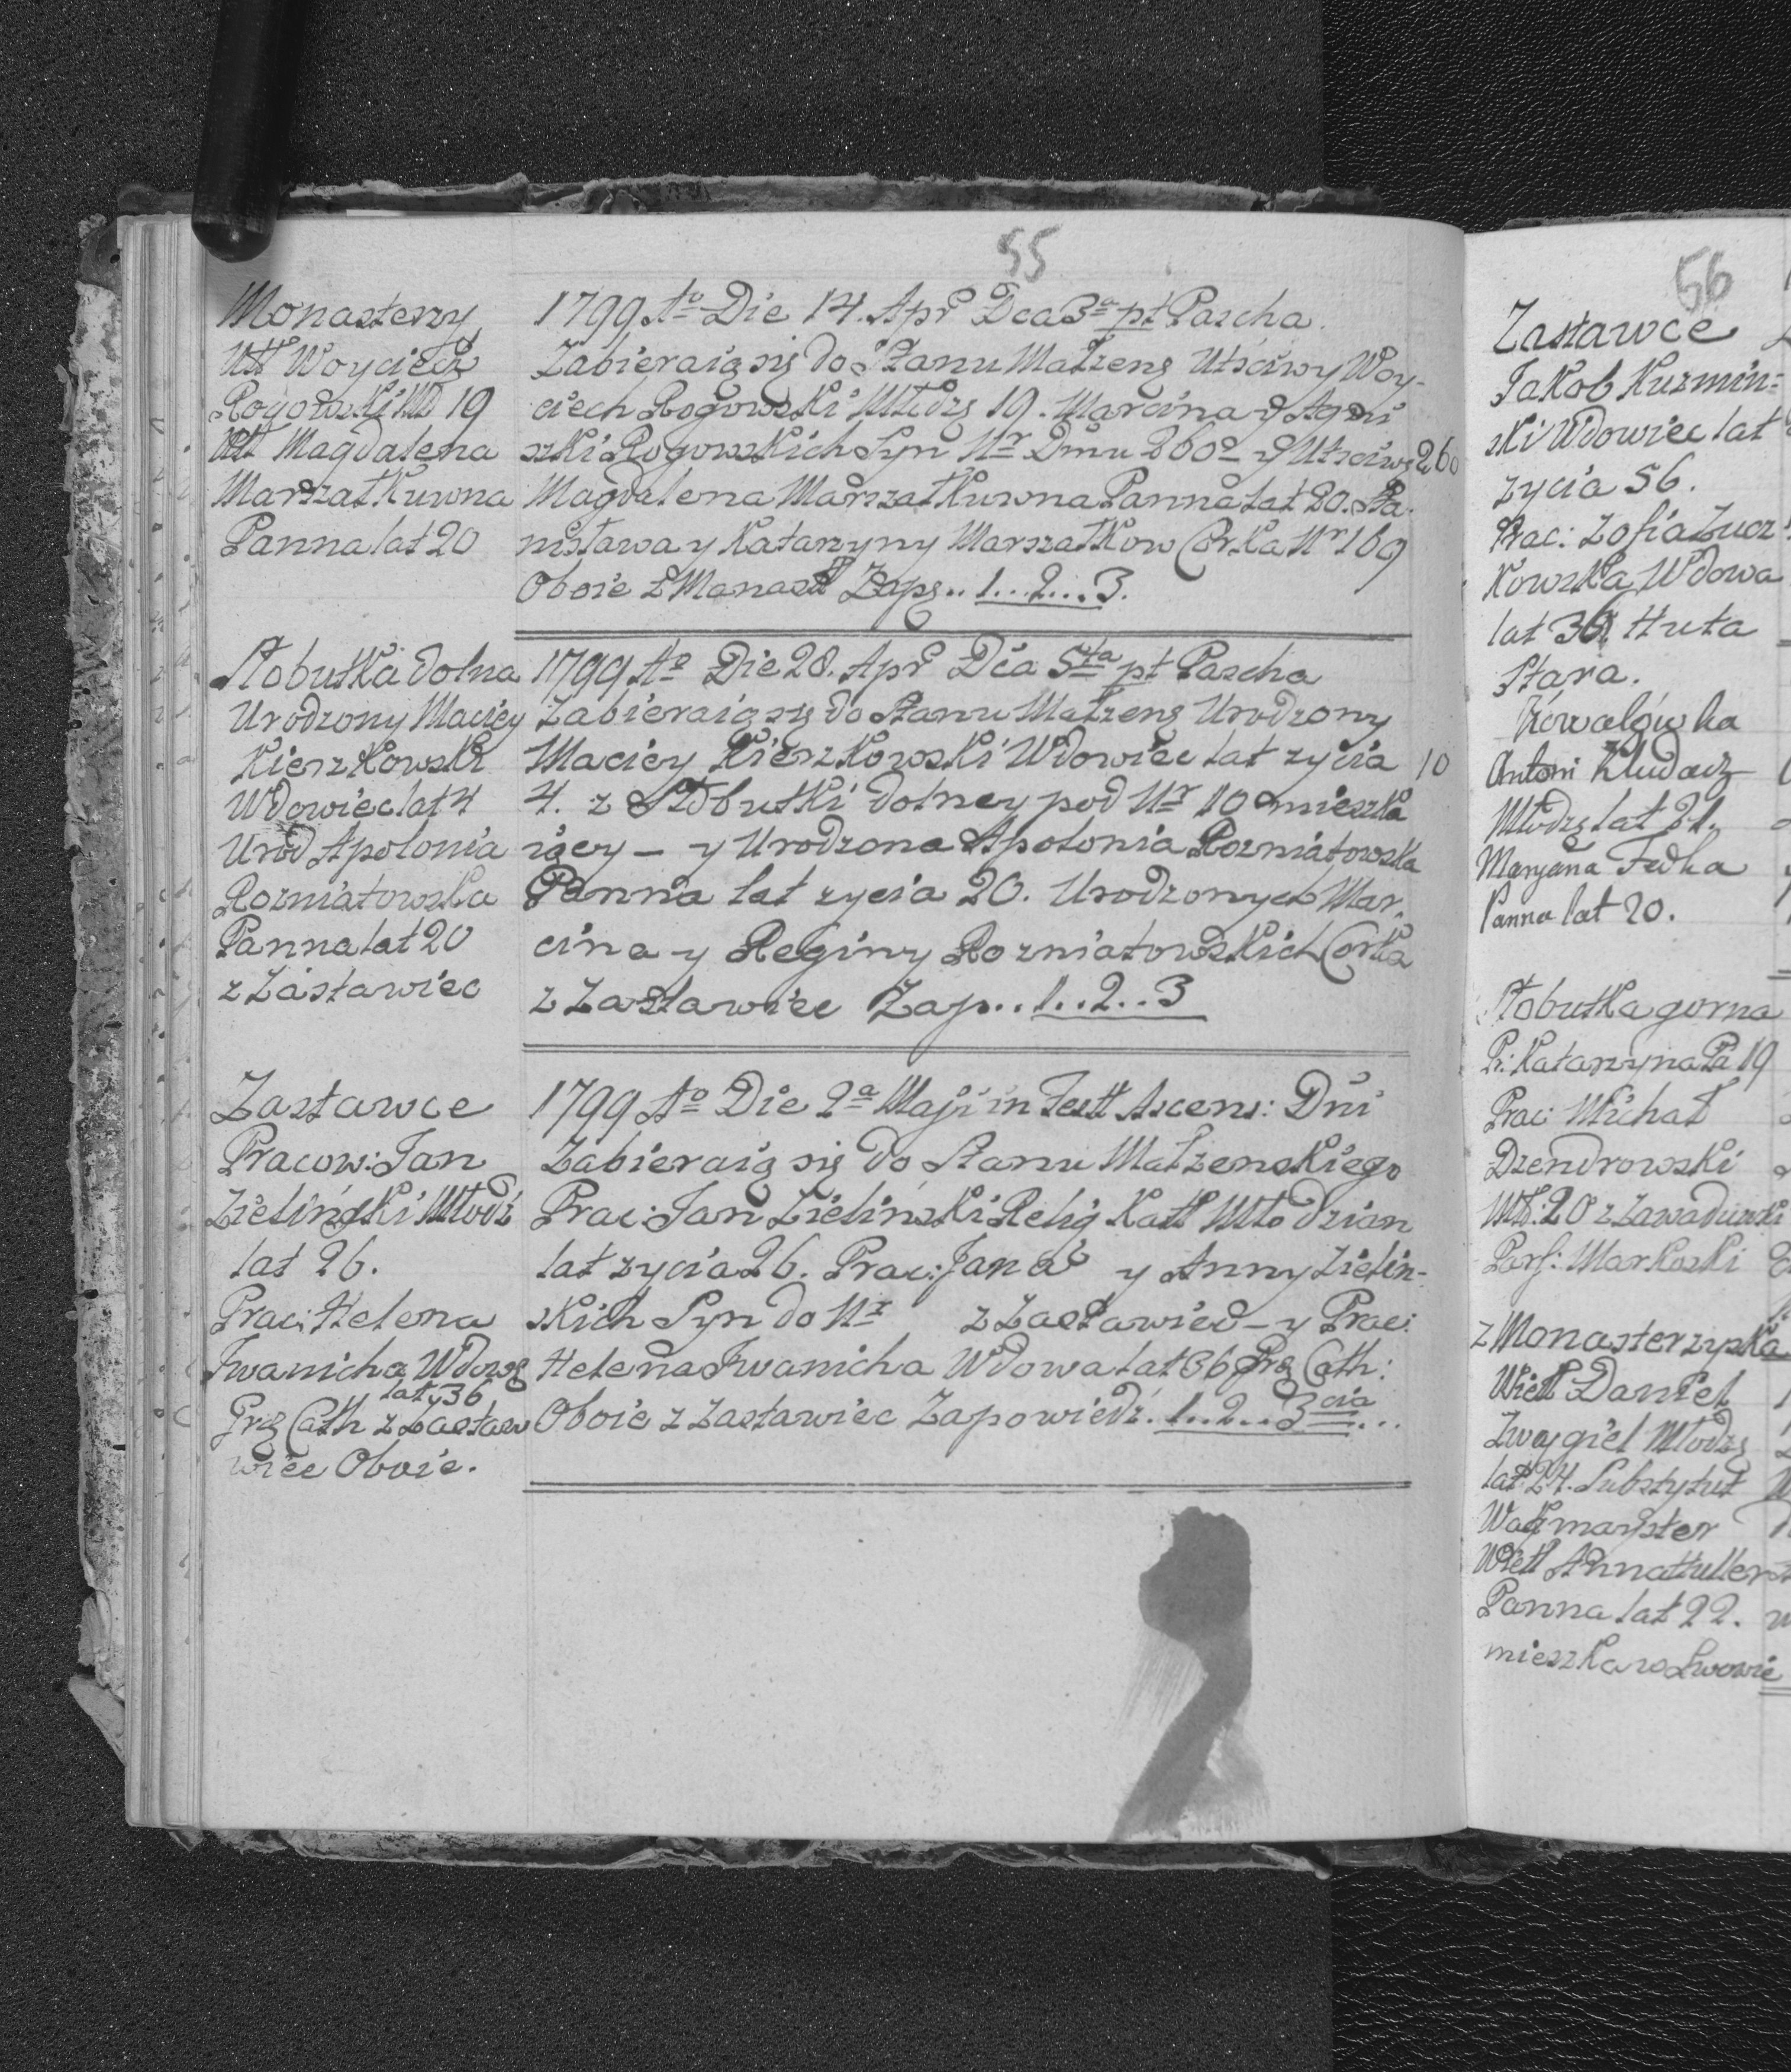 55
Monasterzy
Utt Woyciech
Rogowski Mł 19
Utt Magdalena
Marszałkuwna
Panna lat 20
1799 Aō Die 14. Apr Dca 3ª pt Pascha.
Zabieraią się do Stanu Małżens Utsciwy Woy-
ciech Rogowski Młdzs 19. Marcina y Agni
szki Rogowskich Syn Nr Dmu 260º y Utsciws 260
Magdalena Marszałkuwna Panna lat 20. Sta-
nisława y Katarzyny Marszałkow Corka Nr 169
Oboie z Monast Zaps.. 1...2...3.
Słobutka dolna
Urodzony Maciey
Kierzkowski
Wdowiec lat 4
Urod Apolonia
Rozniatowska
Panna lat 20
z Zastawiec
1799 Aō Die 28. Apr Dca 5ta pt Pascha
Zabieraią się do Stanu Małżens Urodzony
Maciey Kierzkowski Wdowiec lat zycia 10
4. z Słobutki dolney pod Nr 10 mieszka
iący – y Urodzona Apolonia Rozniatowska
Panna lat zycia 20. Urodzonych Mar-
cina y Reginy Rozniatowskich Corka
z Zastawiec Zap.. 1..2..3
Zastawce
Pracow: Jan
Zieliński Młodź
lat 26.
Prac: Helena
Iwanicha Wdowa
lat 36
Grg Cath z Zastaw
wiec Oboie.
1799 Aō Die 2ª Maji in Festt Ascens: Dni
Zabieraią się do Stanu Małzenskiego
Prac: Jan Zieliński Relig Katt Młodzian
lat zycia 26. Prac: Jana y Anny Zielin-
skich Syn do Nr z Zastawiec – y Prac:
Helena Iwanicha Wdowa lat 36 Grg Cath:
Oboie z Zastawiec Zapowiedź. 1..2..3cia...
56
Zastawce
Jakob Kuzmin-
ski Wdowiec lat
zycia 56.
Prac: Zofia Zucz
kowska Wdowa
lat 36 Huta
Stara.
Kowalówka
Antoni Kludacz
Młodzs lat 21.
Maryana Fedka
Panna lat 20.
Słobutka gorna
P: Katarzyna Pa 19
Prac: Michał
Dzendrowski
Mł: 20 z Zawaduwki
Parf: Markoski
z Monasterzyska
Wiell Daniel
Zwaygiel Młodzs
lat 24. Substytut
Wachmayster
Wiell Anna Huller
Panna lat 22.
mieszka w Lwowie